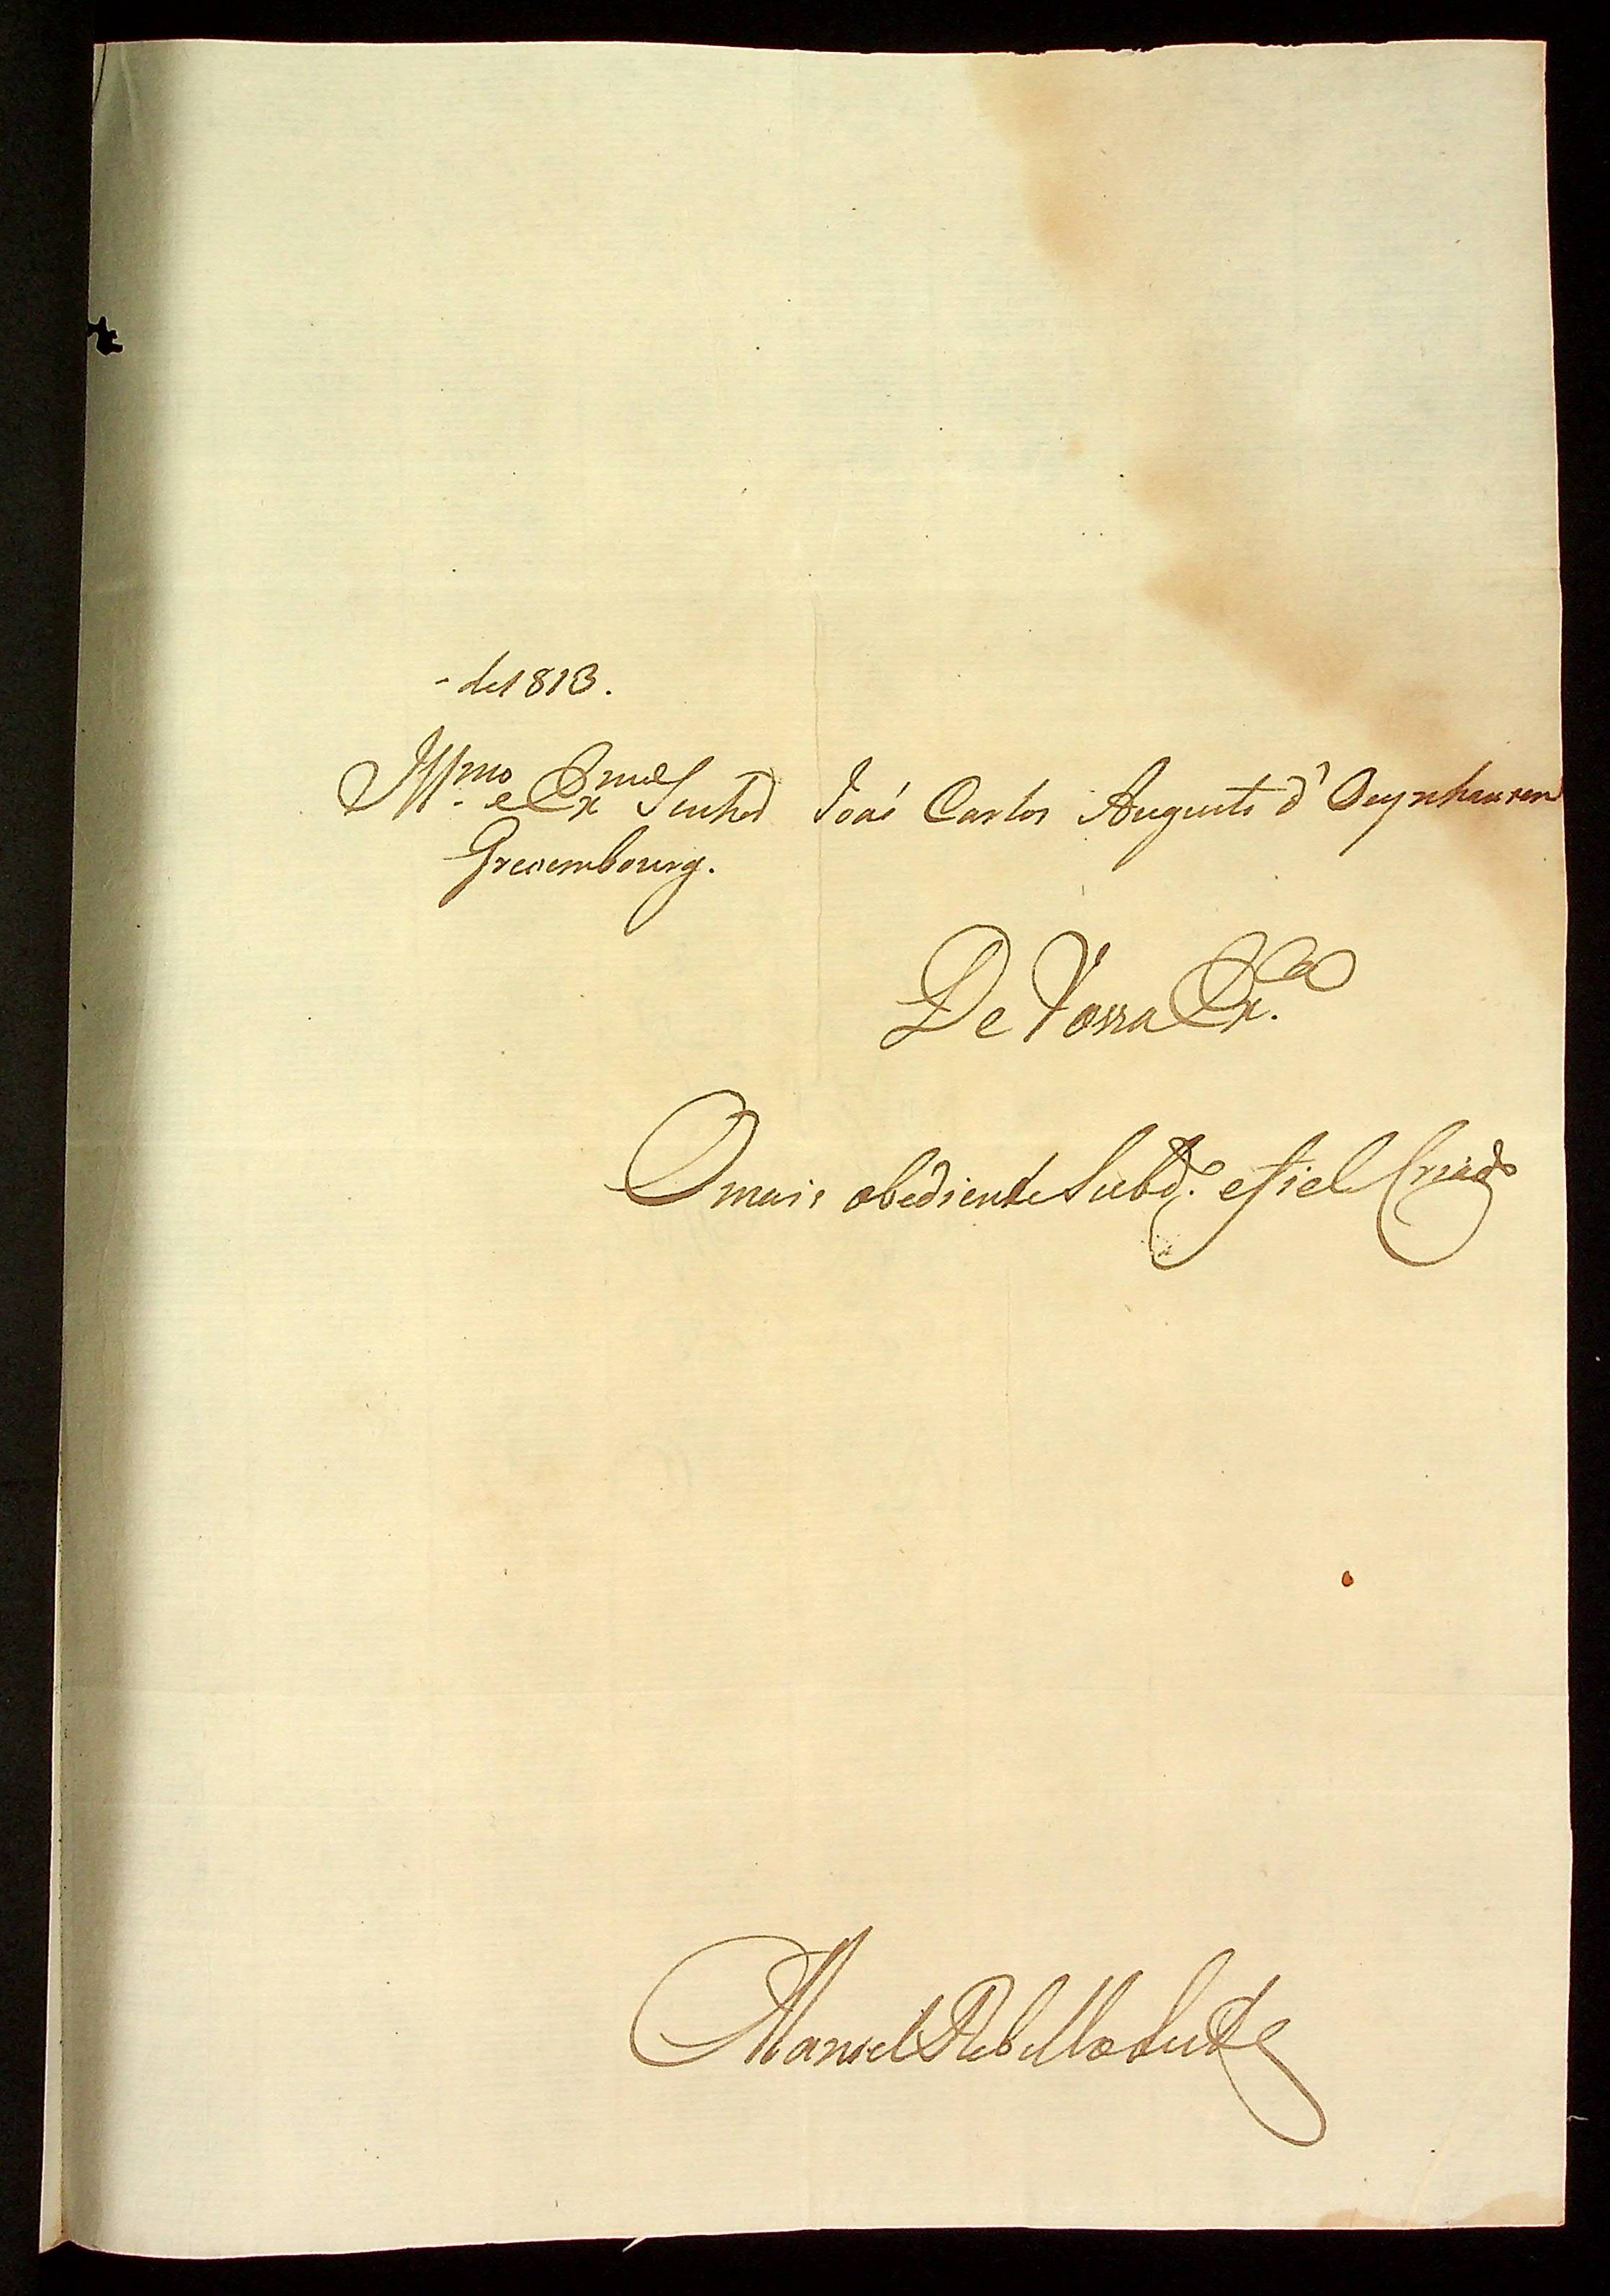 - de 1813.
Ill.mo e Ex.mo Senhor João Carlos Augusto d'Oeynhausen
Grevembourg.
De Vossa Ex.ca
O mais obediente Subd.o e fiel Criado
Manoel Rebello Leite